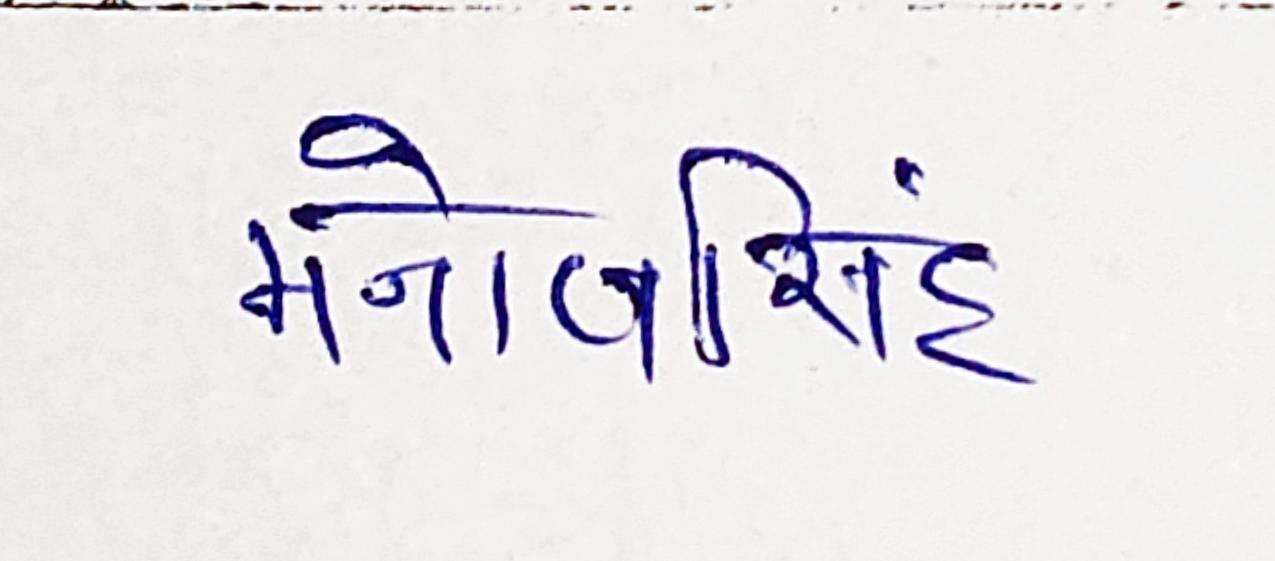 मनोज सिंह